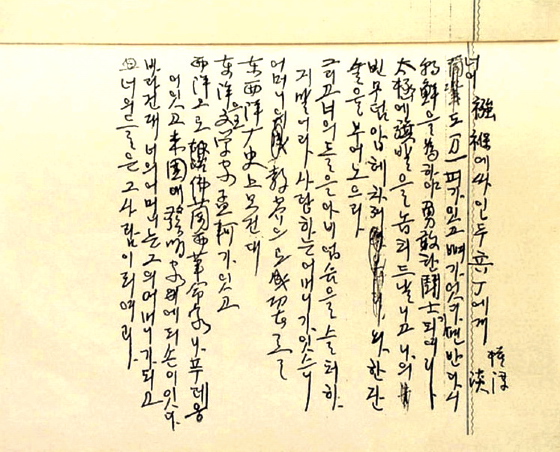 襁褓에싸인두兵丁에게
模淳
淡
너이도万一피가잇고뼈가잇다면반다시
朝鮮을爲하야勇敢한鬪士가되여라
太極에旗발을놉피드날니고나의
빈무덤압헤차져와한잔
술을부어노으라
그리고너의들은아비업슴을슬퍼하
지말어라사랑하는어머니가잇스니
어머니의敎育으로成功者를
東西洋歷史上보건대
東洋으로文學家孟軻가잇고
西洋으로佛蘭西革命家나푸레옹
이잇고米國에發明家에듸손이잇다
바라건대너의어머니는그의어머니가되고
너의들은그사람이되여라